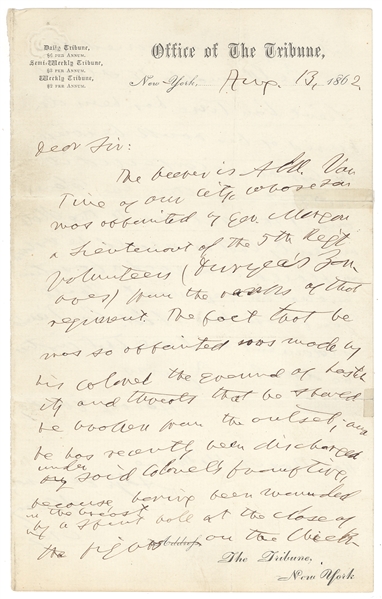 Daily Tribune,
$6 PER ANNUM.
Semi-Weekly Tribune,
$3 PER ANNUM.
Weekly Tribune,
$2 PER ANNUM.
Office of The Tribune,
New York, Aug. 13, 1862
Dear Sir:
The bearer is Ald. Van
Tine of our City, whose son
was appointed by Gov. Morgan
a Lieutenant of the 5th Regt
Volunteers (Duryea's Zou-
aves) from the ranks of that
regiment. The fact that he
was so appointed was made by
his colonel the ground of hostil-
ity and threats that he should
be broken from the outset; and
he has recently been discharged
under said Colonel's
because having been wounded
in the breast
by a spent ball at the close of
the fight on the Chick-
The Tribune,
New York